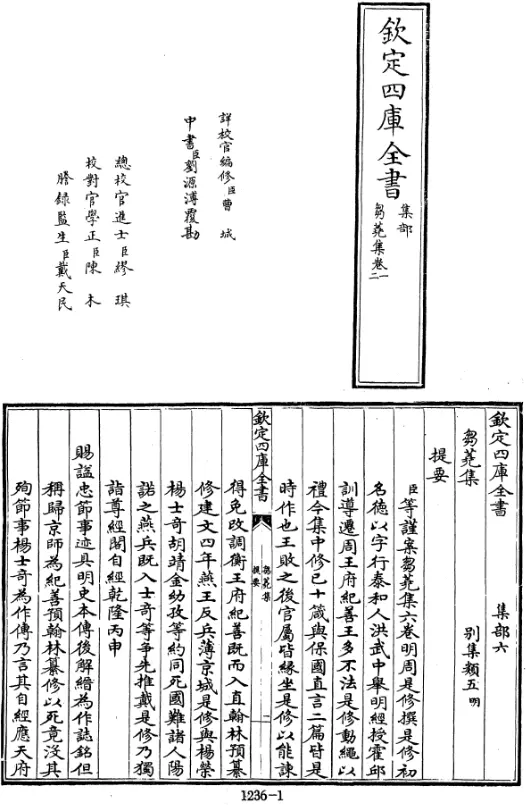 欽定四庫全書
集部
芻蕘集卷一二
詳校官編修臣曹城
中書臣劉源溥覆勘
總校官進士臣繆琪
校對官學正臣陳木
謄錄監生臣戴天民
欽定四庫全書 集部六
芻蕘集 別集類五明
提要
臣等謹案芻蕘集六卷明周是修撰是修初
名德以字行泰和人洪武中舉明經授霍邱
訓導遷周王府紀善王多不法是修動繩以
禮今集中修己十箴與保國直言二篇皆是
時作也王敗之後官屬皆緣坐是修以能諫
欽定四庫全書
芻蕘集
提要
一
得免改調衡王府紀善既而入直翰林預纂
修建文四年燕王反兵薄京城是修與楊榮
楊士奇胡靖金幼孜等約同死國難諸人陽
諾之燕兵既入士奇等爭先推戴是修乃獨
詣尊經閣自經乾隆丙申
賜謚忠節事迹具明史本傳後解縉為作誌銘但
稱歸京師為紀善預翰林纂修以死竟沒其
殉節事楊士奇為作傳乃言其自經應天府
1236-1